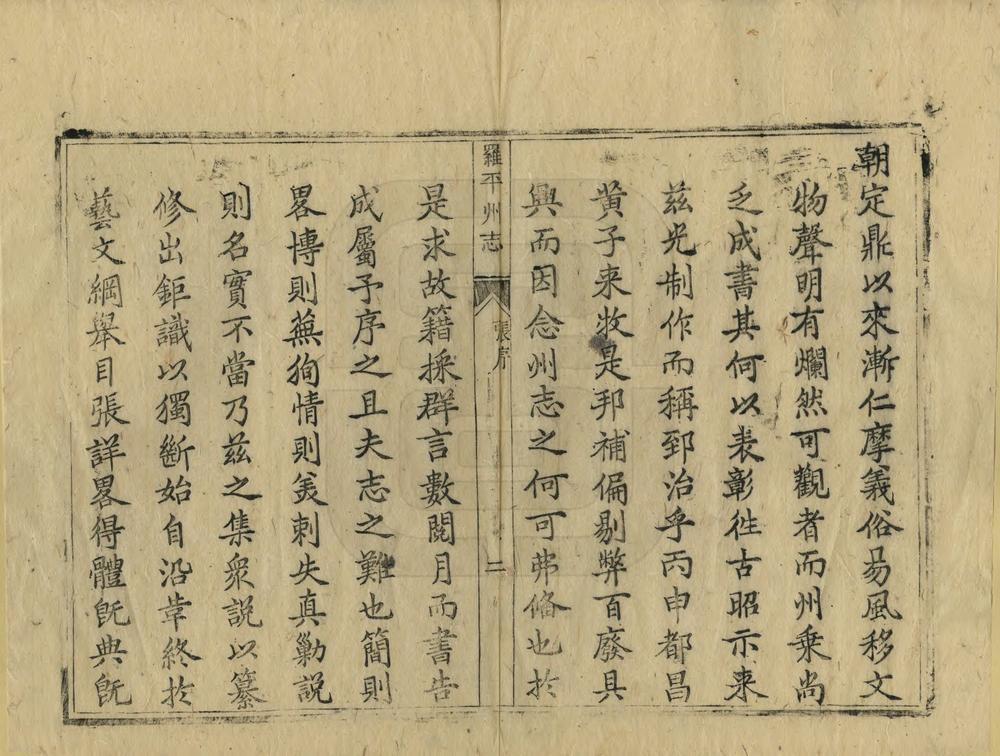 朝定鼎以來漸仁摩義俗易風移文
物聲明有爛然可觀者而州乗尚
乏成書其何以表彰徃古昭示来
兹光制作而稱郅治乎丙申都昌
黄子来牧是邦補偏剔弊百廢具
興而因念州志之何可弗俻也於
羅平州志
張序
二
是求故籍採群言數閱月而書告
成屬予序之且夫志之難也簡則
畧博則蕪狥情則美刺失真勦説
則名實不當乃兹之集衆説以纂
修出鉅識以獨斷始自沿革終於
藝文綱舉目張詳畧得體旣典旣